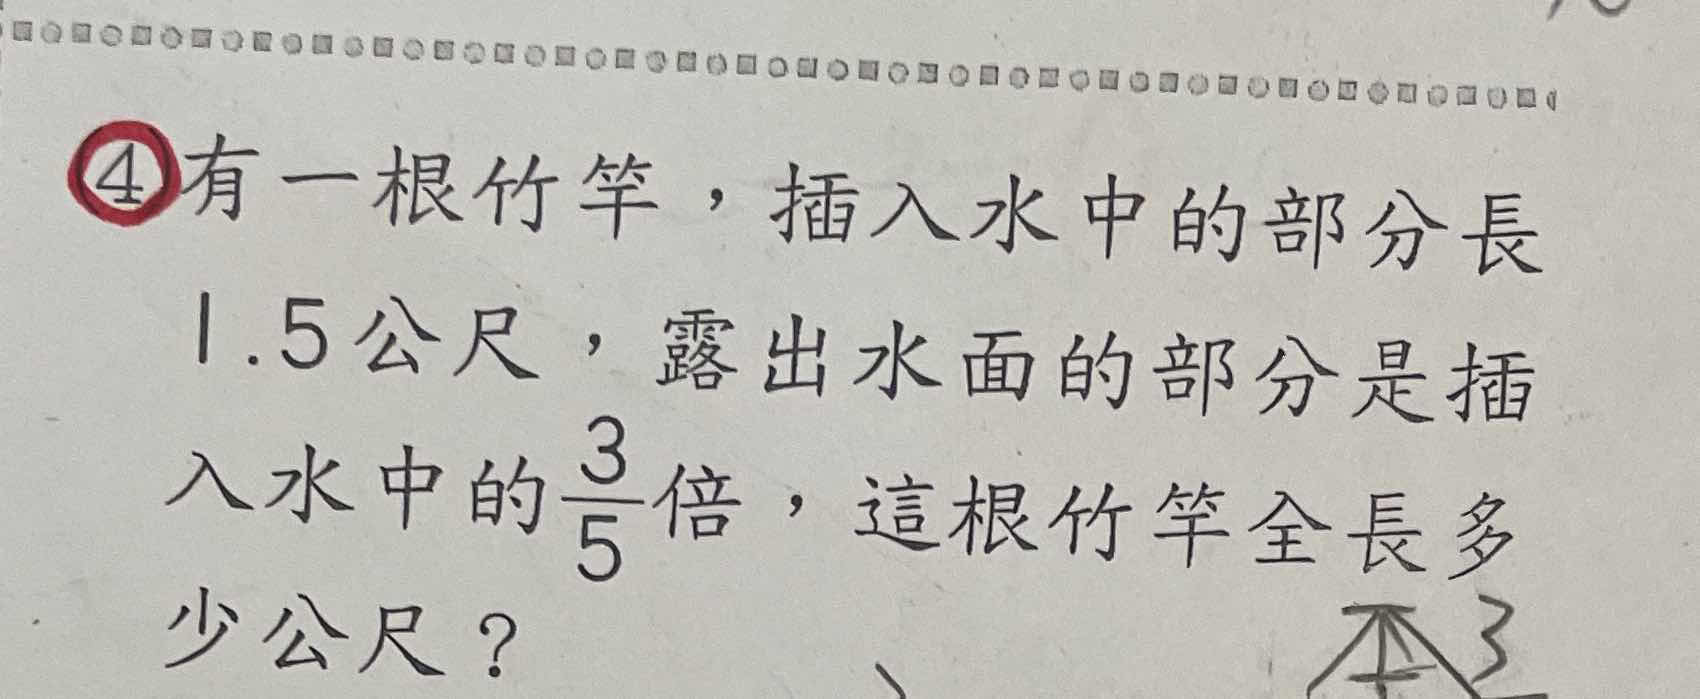 ④有一根竹竿，插入水中的部分長
1.5公尺，露出水面的部分是插
入水中的3/5倍，這根竹竿全長多
少公尺？
本3